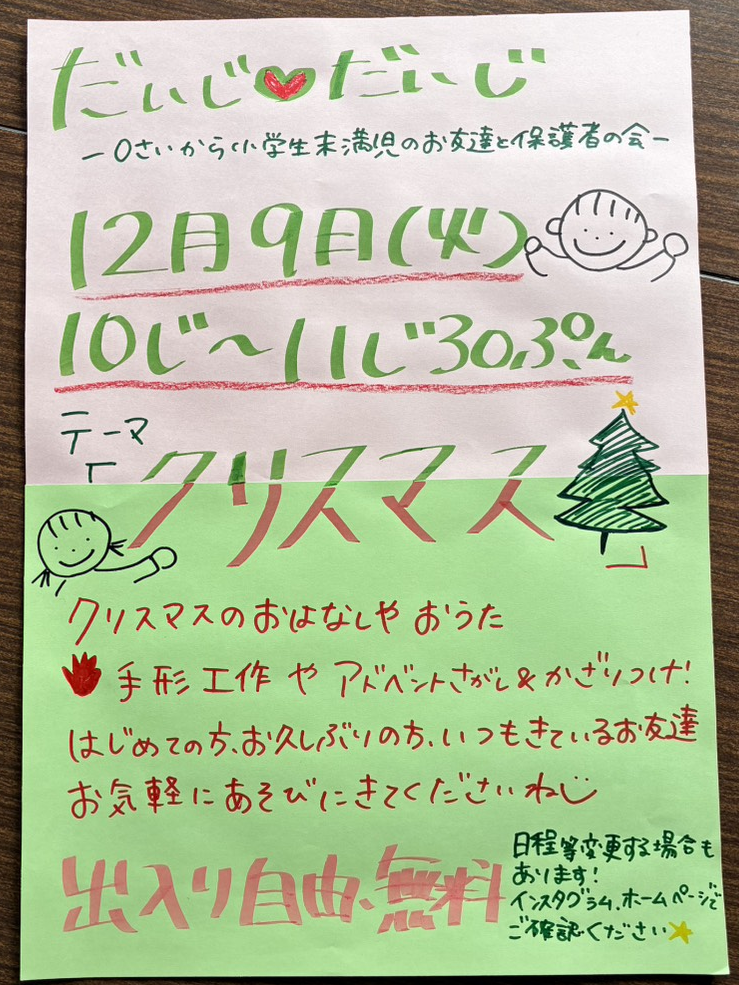 だいじ♥だいじ
ー0さいから小学生未満児のお友達と保護者の会ー
12月9日(火)
10じ～11じ30ぷん
テーマ
「クリスマス」
クリスマスのおはなしや おうた
手形工作や アドベントさがし&かざりつけ!
はじめての方、お久しぶりの方、いつもきているお友達
お気軽にあそびにきてくださいね
出入り自由、無料
日程等変更する場合も
あります!
インスタグラム、ホームページで
ご確認ください★